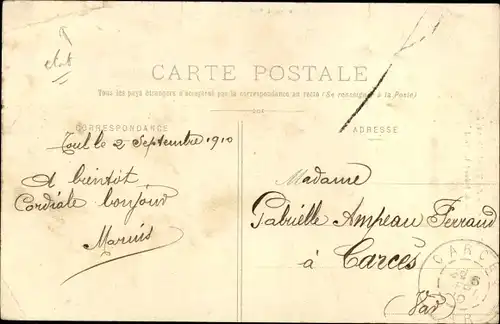 CARTE POSTALE
Tous les pays étrangers n'acceptent pas la correspondance au recto (Se renseigner à la Poste)
CORRESPONDANCE
ADRESSE
Toul le 2 Septembre 1910
A bientôt
Cordiale bonjour
Marius
Madame
Gabrielle Ampeau Ferraud
à Carcès
(Var)
CARC